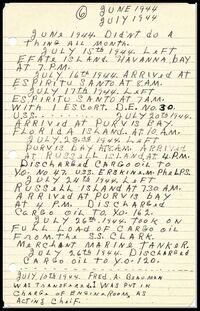 6 JUNE 1944
JULY 1944
JUNE 1944. DIDN'T DO A
THING ALL MONTH.
JULY 15TH 1944. LEFT
EFATE ISLAND. HAVANNA BAY
AT 7 P.M.
JULY 16TH 1944. ARRIVED AT
ESPIRITU SANTO AT 8AM.
JULY 17TH 1944. LEFT
ESPIRITU SANTO AT 7AM.
WITH 1 ESCORT. D.E. NO. 30.
U.S.S. JULY 20TH 1944.
ARRIVED AT PURVIS BAY
FLORIDA ISLAND. AT 10 A.M.
JULY 23RD 1944. LEFT
PURVIS BAY AT AM. ARRIVED
AT RUSSELL ISLAND AT 4 P.M.
DISCHARGED CARGO OIL TO
YO. NO 47. USS. ERSKINE M. PHELPS.
JULY 24TH 1944. LEFT
RUSSELL ISLAND AT 7.30 AM.
ARRIVED AT PURVIS BAY
AT 4 PM. DISCHARGED
CARGO OIL TO YO. 162.
JULY 26TH 1944. TOOK ON
FULL LOAD OF CARGO OIL
FROM THE SS. CLARK.
MERCHANT MARINE TANKER.
JULY 26TH 1944. DISCHARGED
CARGO OIL TO Y.O. 120.
JULY, 10TH 1944. FRED A.
WAS TRANSFERED. I WAS PUT IN
CHARGE OF ENGINE ROOM AS
ACTING CHEIF.